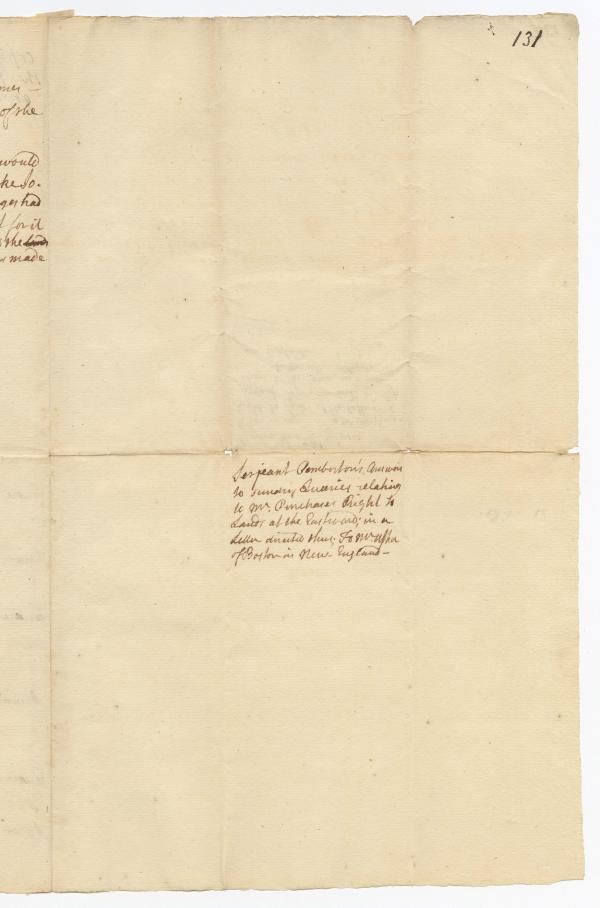 131
of the
would
ke so.
ges had
for it
the
made
Serjeant Pemberton's Answer
to sundry Queeries relating
to Mr. Purchases Right to
Lands at the Eastward; in a
Letter directed thus; To Mr Usher
of Boston in New England—